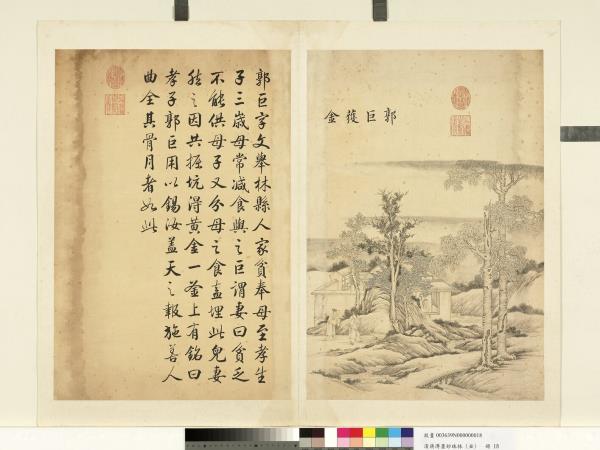 郭巨獲金
郭巨字文舉林縣人家貧奉母至孝生
子三歲母常減食與之巨謂妻曰貧乏
不能供母子又分母之食盍埋此兒妻
然之因共掘坑得黃金一釜上有銘曰
孝子郭巨用以錫汝蓋天之報施善人
曲全其骨月者如此
故畫 003639N000000018
冊 18